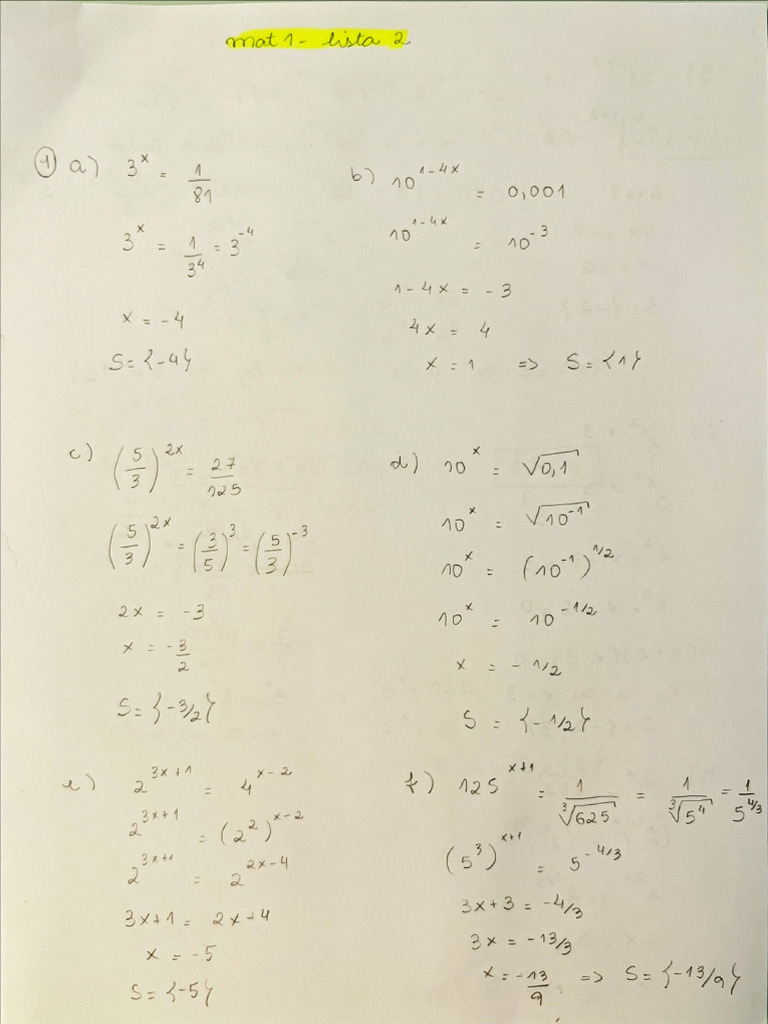 mat 1 - lista 2
① a) 3^x = 1/81
3^x = 1/3^4 = 3^-4
x = -4
S = {-4}
b) 10^(1-4x) = 0,001
10^(1-4x) = 10^-3
1-4x = -3
4x = 4
x = 1 => S = {1}
c) (5/3)^2x = 27/125
(5/3)^2x = (3/5)^3 = (5/3)^-3
2x = -3
x = -3/2
S = {-3/2}
d) 10^x = √0,1
10^x = √10^-1
10^x = (10^-1)^1/2
10^x = 10^-1/2
x = -1/2
S = {-1/2}
e) 2^(3x+1) = 4^(x-2)
2^(3x+1) = (2^2)^(x-2)
2^(3x+1) = 2^(2x-4)
3x+1 = 2x+4
x = -5
S = {-5}
f) 125^(x+1) = 1/∛625 = 1/∛5^4 = 1/5^4/3
(5^3)^(x+1) = 5^-4/3
3x+3 = -4/3
3x = -13/3
x = -13/9 => S = {-13/9}